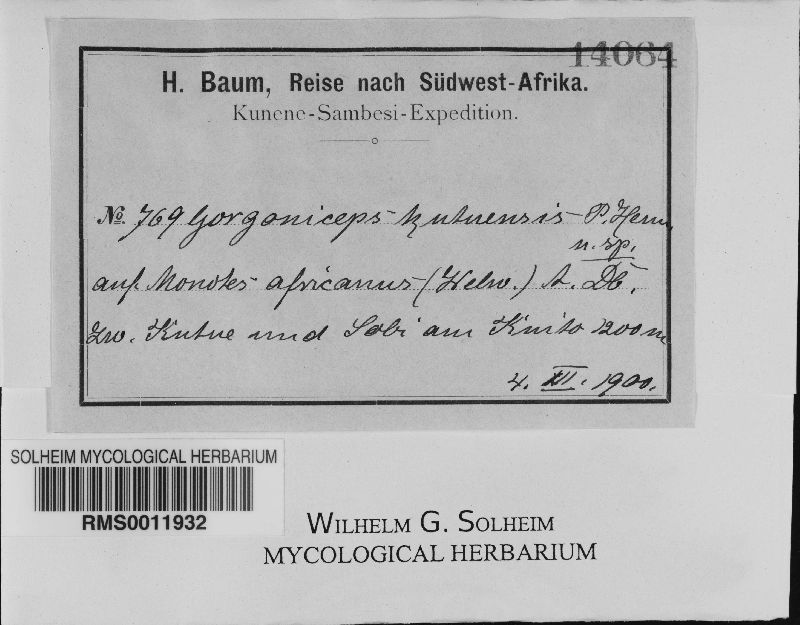 14064
H. Baum, Reise nach Südwest-Afrika.
Kunene-Sambesi-Expedition.
No. 769 Gorgoniceps kutuensis P. Henn.
n. sp.
auf Monotes africanus (Welw.) A. DC.
zw. Kutue und Sobi am Kuito 1200 m
4. XII. 1900.
SOLHEIM MYCOLOGICAL HERBARIUM
RMS0011932
WILHELM G. SOLHEIM
MYCOLOGICAL HERBARIUM